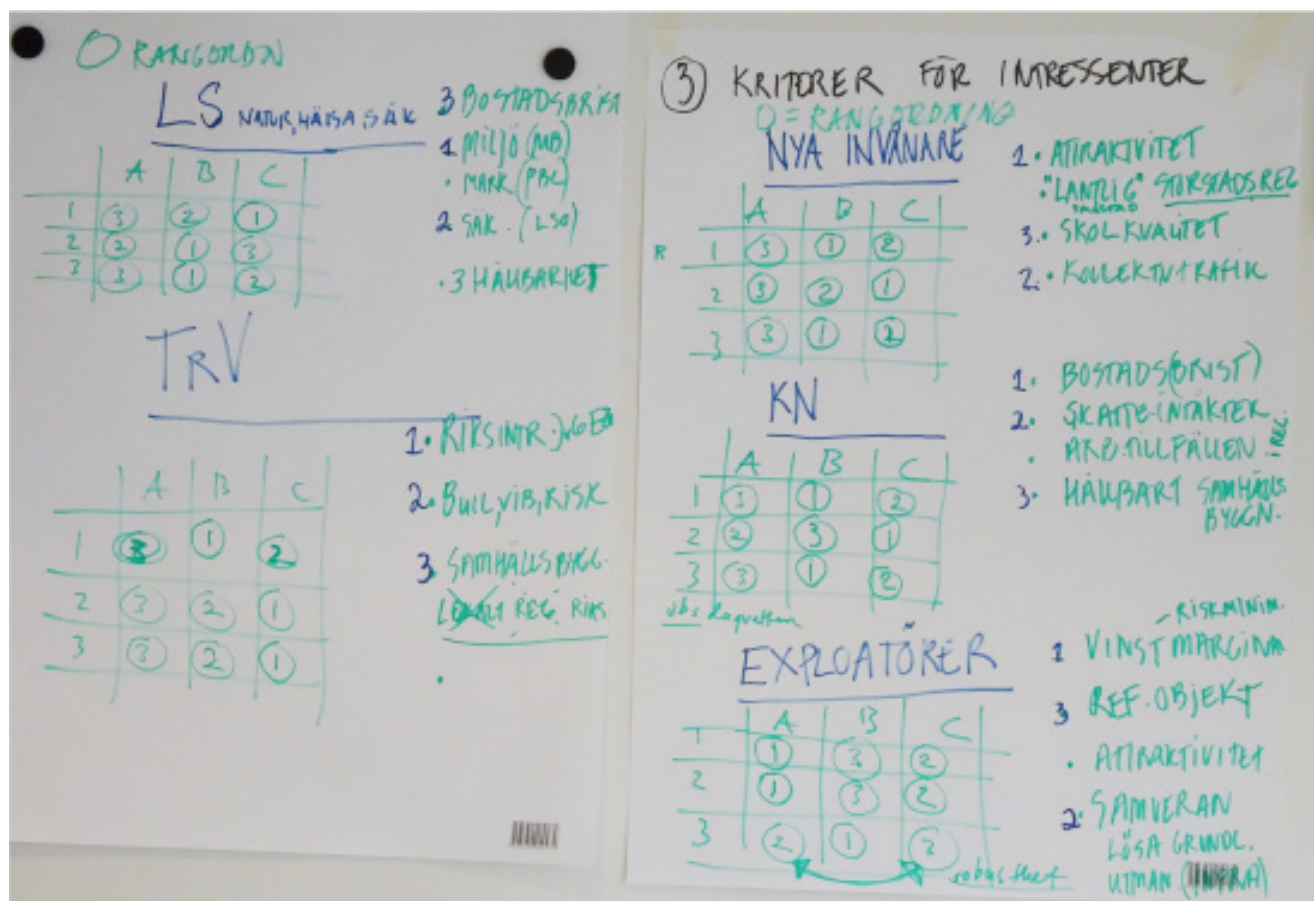 O RANGORDN
LS NATUR, HÄLSA, SÄK
A B C
1 3 2 1
2 2 1 3
3 3 1 2
3 BOSTADSBRIST
1 MILJÖ (MB)
· MARK (PBL)
2 SÄK. (LSO)
· 3 HÅLLBARHET
TRV
A B C
1 3 1 2
2 3 2 1
3 3 2 1
1. RIKSINTR.
2. BULL, VIB, RISK
3 SAMHÄLLSBYGG.
REG. RIKS
3 KRITERER FÖR INTRESSENTER
O = RANGORDNING
NYA INVÅNARE
A B C
R 1 3 1 2
2 3 2 1
3 3 1 2
1. ATTRAKTIVITET
· "LANTLIG" STORSTADSREG
3. · SKOLKVALITET
2. · KOLLEKTIVTRAFIK
KN
A B C
1 3 1 2
2 2 3 1
3 3 1 2
1. BOSTADS(BRIST)
2. SKATTE-INTÄKTER
· ARB.TILLFÄLLEN I REG.
3. HÅLLBART SAMHÄLLS
BYGGN.
EXPLOATÖRER
A B C
1 1 3 2
2 1 3 2
3 2 1
robusthet
- RISKMINIM.
1 VINSTMARGINAL
3 REF.OBJEKT
· ATTRAKTIVITET
2. SAMVERAN
LÖSA GRUNDL.
UTMAN